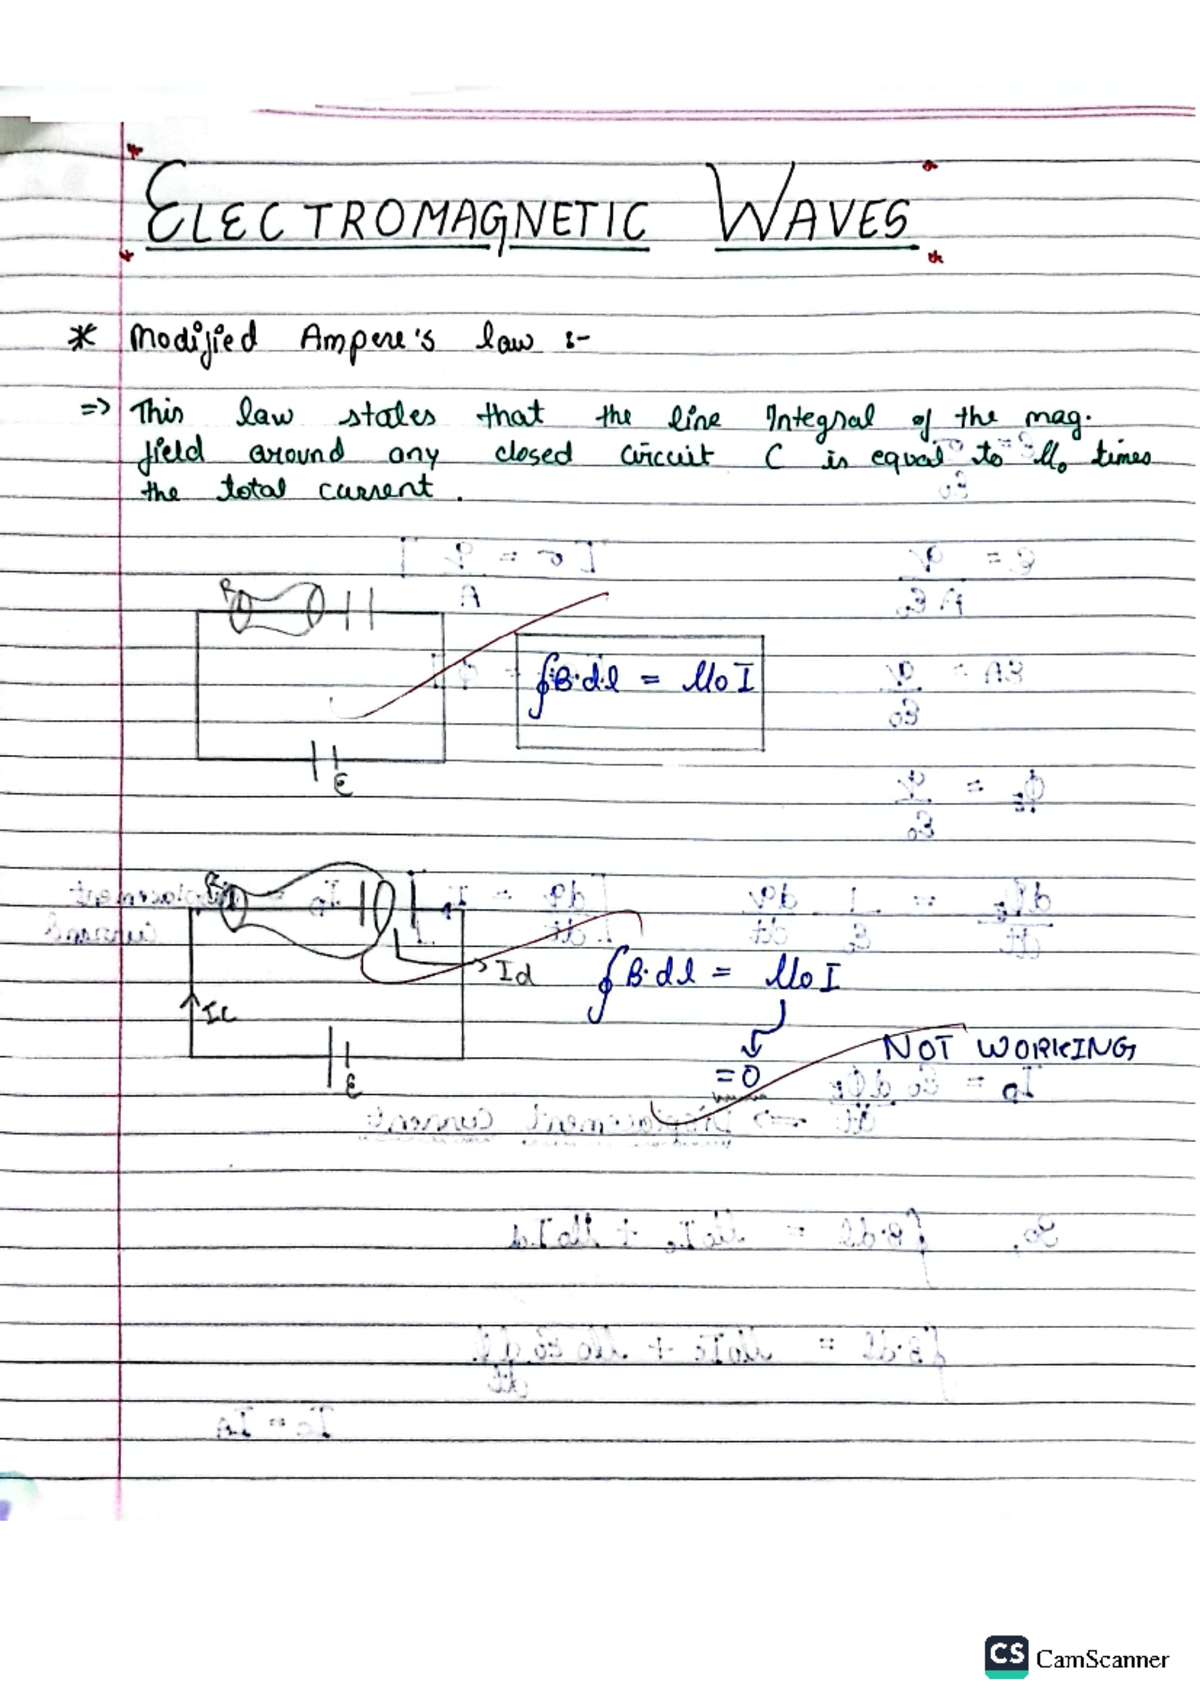 ELECTROMAGNETIC WAVES
* Modified Ampere's law :-
=> This law states that the line Integral of the mag.
field around any closed circuit C is equal to μ₀ times
the total current.
R
∮B·dl = μ₀I
ε
R
Id
∮B·dl = μ₀I
Ic
NOT WORKING
= 0
ε
CS CamScanner